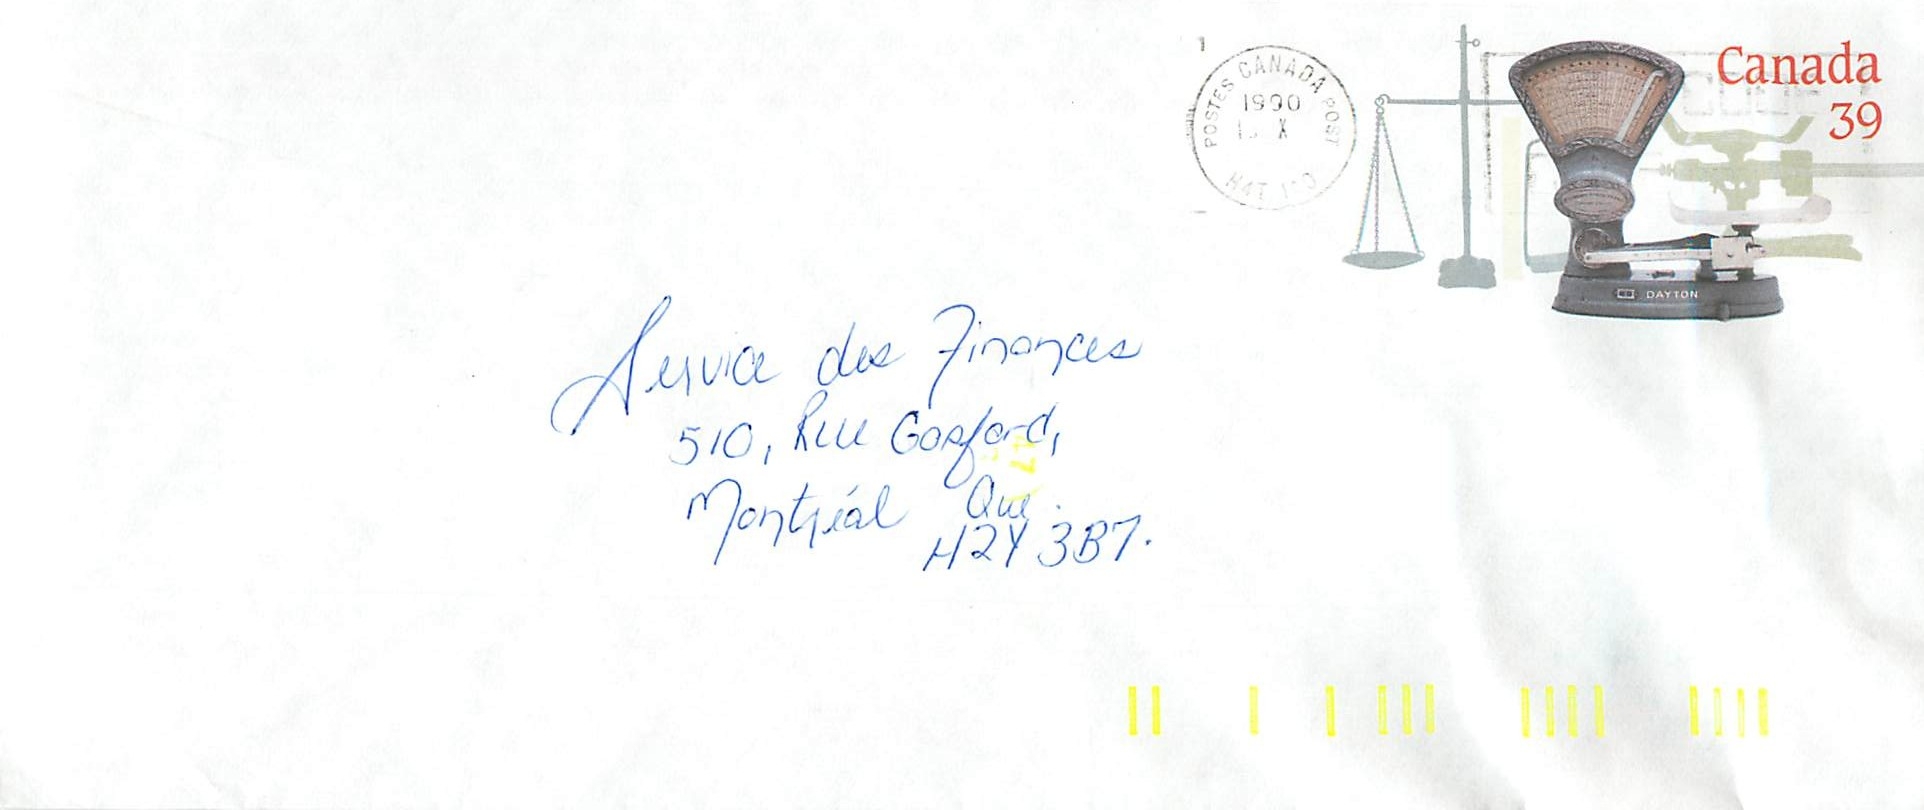 Canada
39
POSTES CANADA POST
1990
X
H4T 1 3
DAYTON
Service des Finances
510, Rue Gosford,
Montréal Que.
H2Y 3B7.
47